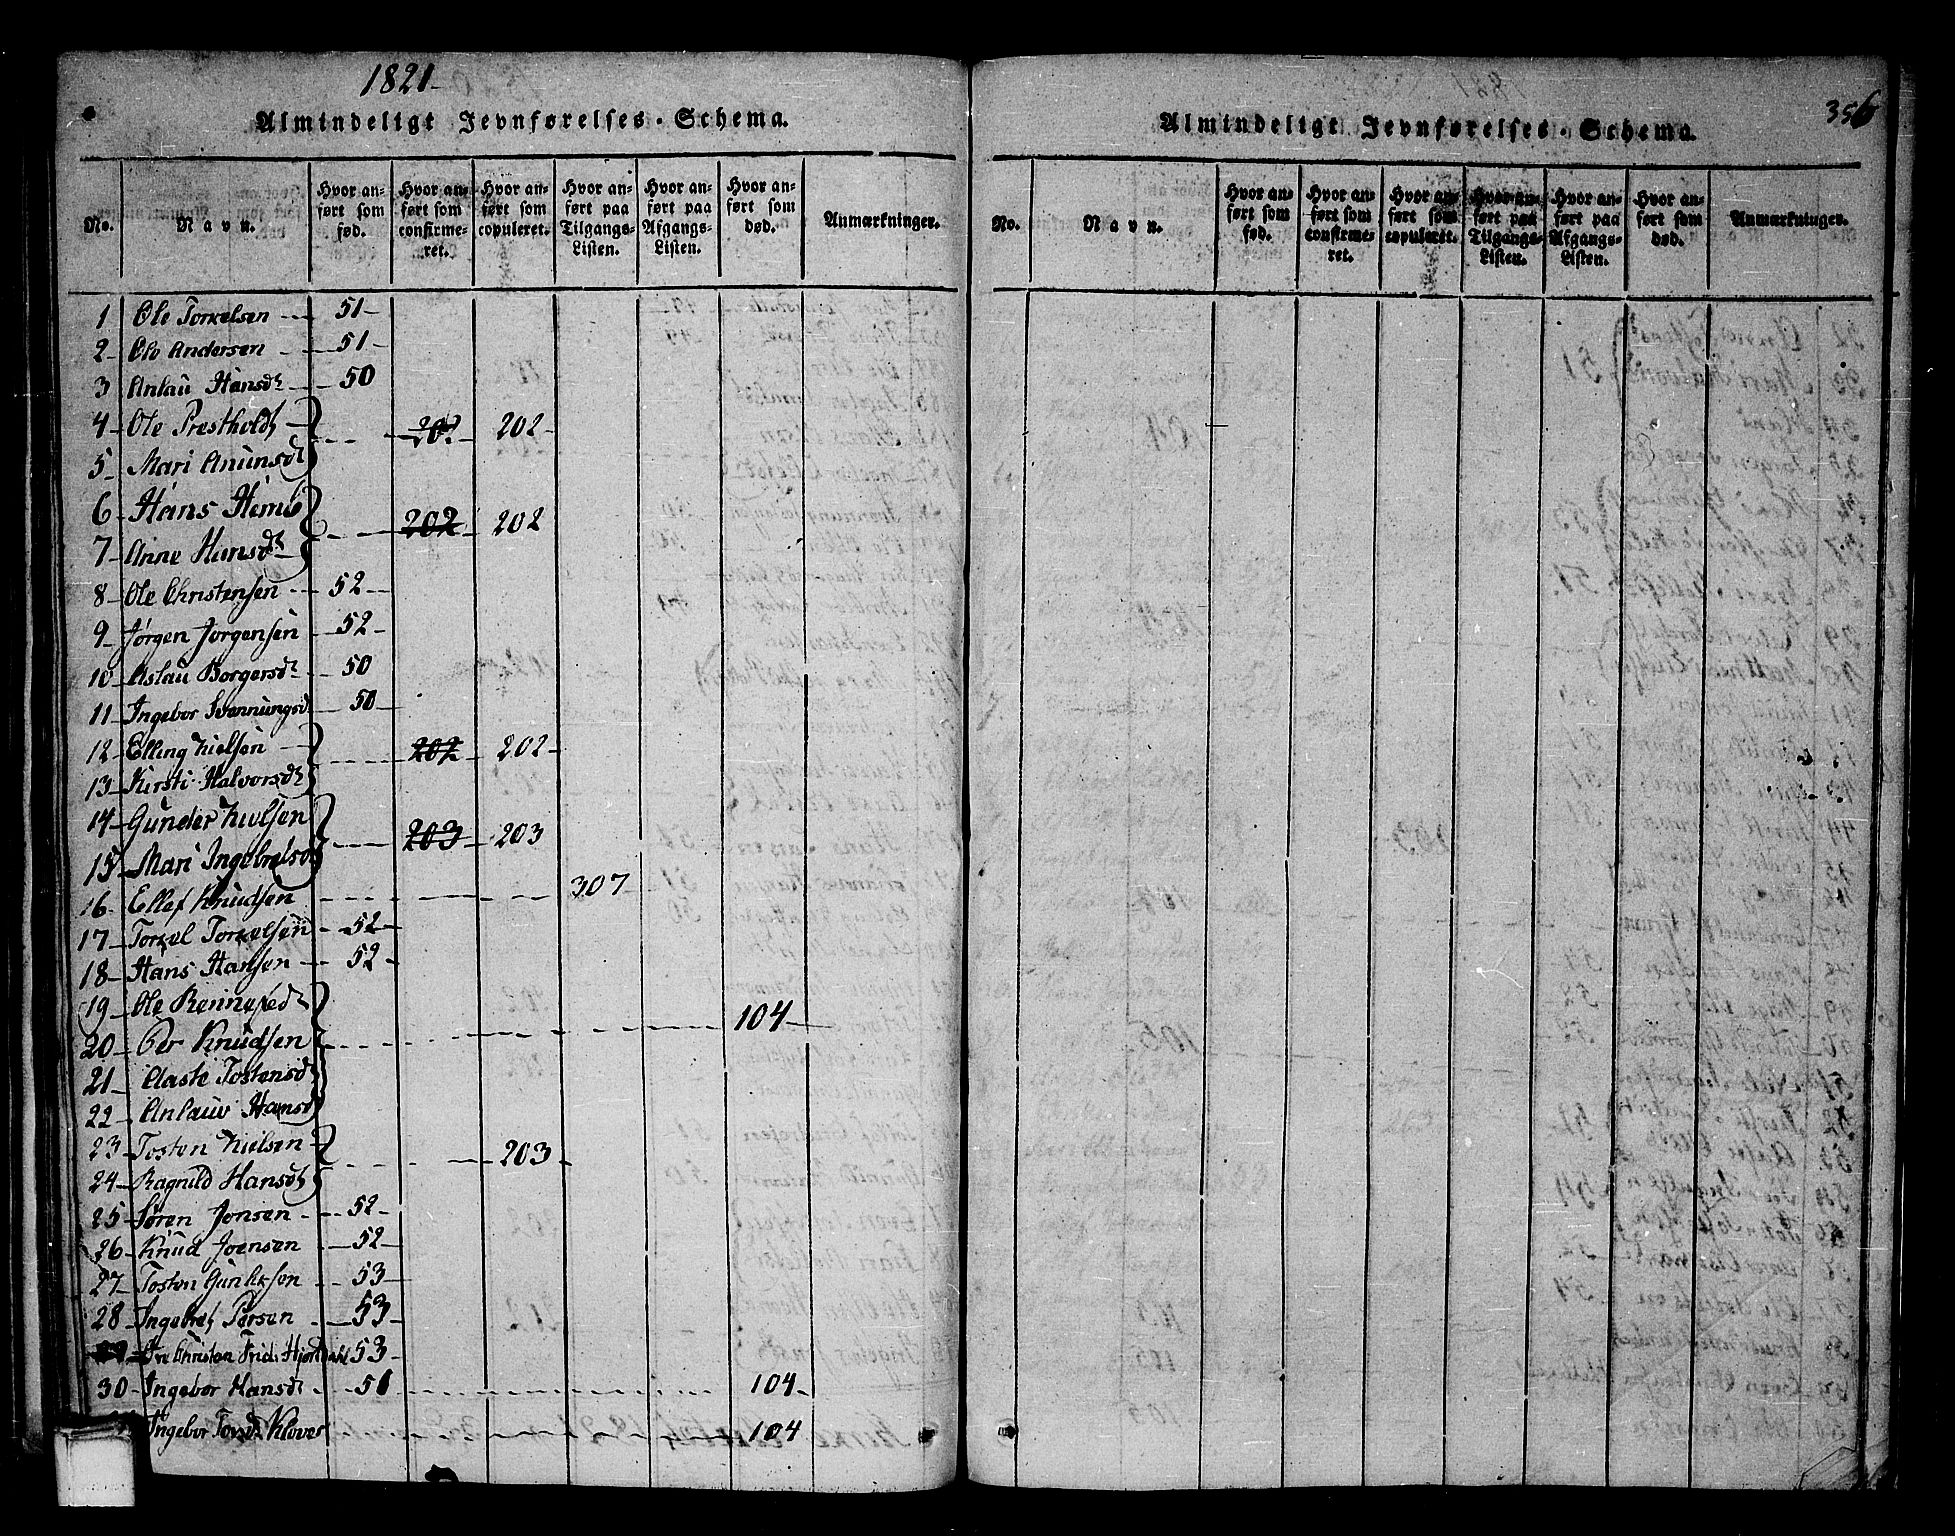 1821
Almindeligt Jevnførelses-Schema.
No. Navn. Hvor anført som fød. Hvor anført som confirmeret. Hvor anført som copuleret. Hvor anført paa Tilgangs-Listen. Hvor anført paa Afgangs-Listen. Hvor anført som død. Anmærkninger.
1 Ole Torkelsen 51
2 Andersen 51
3 Anlau Hansdr 50
4 Ole Prestholdt 202 202
5 Mari Anunsdr
6 Hans 202 202
7 Anne Hansdr
8 Ole Christensen 52
9 Jørgen Jorgensen 52
10 Aslau Borgersdr 50
11 Ingebor Svennungsdr 50
12 Elling Nielsen 202 202
13 Kirsti Halvorsdr
14 Gunder Nielsen 203 203
15 Mari Ingebretsdr
16 Ellef Knudsen 307
17 Torkel Torkelsen 52
18 Hans Hansen 52
19 Ole 104
20 Per Knudsen
21 Aaste Tostensdr
22 Anlauv Hansdr
23 Tosten Nielsen 203
24 Ragnild Hansdr
25 Søren Jonsen 52
26 Knud Joensen 52
27 Tosten Gunliksen 53
28 Ingebret Persen 53
29 Christen Frid. Hjortdahl 53
30 Ingebor Hansdr 51 104
Ingebor Torsdr Kloves 104
356
Almindeligt Jevnførelses-Schema.
No. Navn. Hvor anført som fød. Hvor anført som confirmeret. Hvor anført som copuleret. Hvor anført paa Tilgangs-Listen. Hvor anført paa Afgangs-Listen. Hvor anført som død. Anmærkninger.